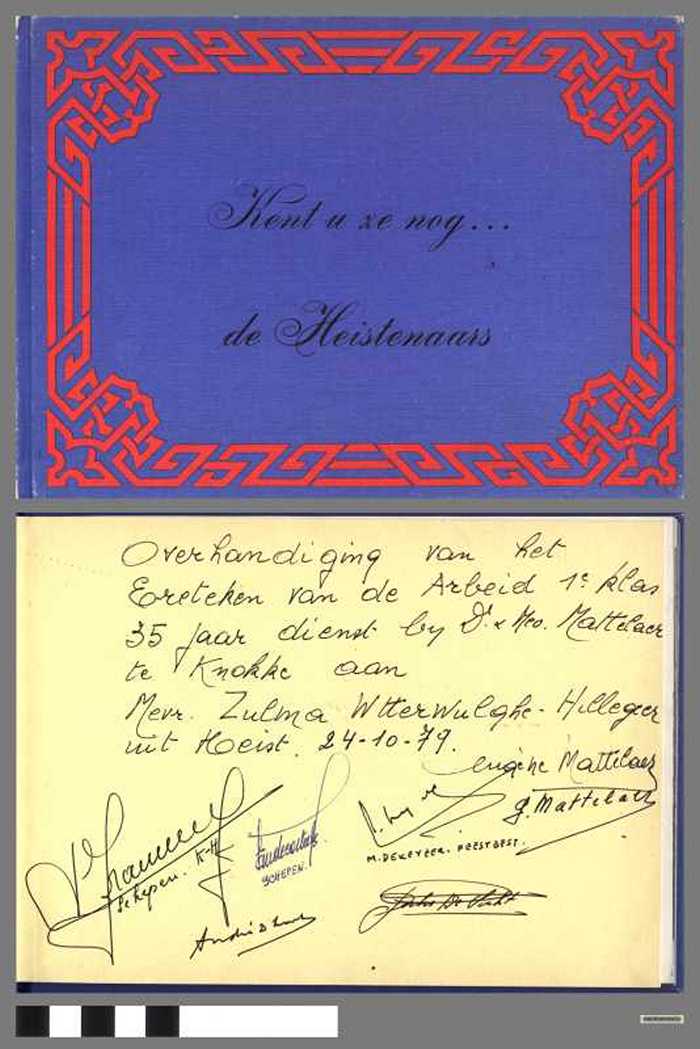 Kent u ze nog...
de Heistenaars
Overhandiging van het
Ereteken van de Arbeid 1e klas
35 jaar dienst by Dr. & Mev. Mattelaer
te Knokke aan
Mevr. Zulma Wtterwulghe - Hillegeer
uit Heist. 24-10-79.
Eugène Mattelaer
g. Mattelaer
Schepen. K-H
SCHEPEN.
M. DEKEYZER. FEESTBEST.
André D